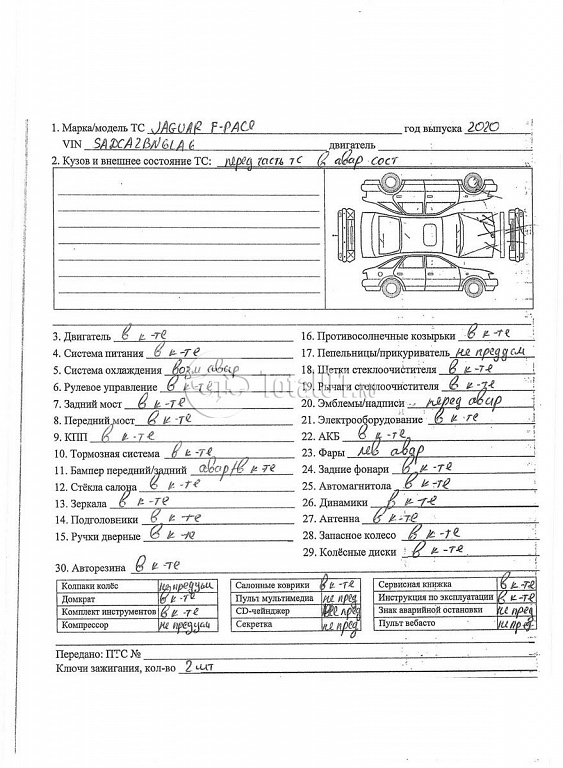 1. Марка/модель ТС JAGUAR F-PACE год выпуска 2020
VIN SADCA2BN6LA6 двигатель
2. Кузов и внешнее состояние ТС: перед часть тс в авар сост
3. Двигатель в к-те
4. Система питания в к-те
5. Система охлаждения возм авар
6. Рулевое управление в к-те
7. Задний мост в к-те
8. Передний мост в к-те
9. КПП в к-те
10. Тормозная система в к-те
11. Бампер передний/задний авар/в к-те
12. Стёкла салона в к-те
13. Зеркала в к-те
14. Подголовники в к-те
15. Ручки дверные в к-те
16. Противосолнечные козырьки в к-те
17. Пепельницы/прикуриватель не предусм
18. Щетки стеклоочистителя в к-те
19. Рычаги стеклоочистителя в к-те
20. Эмблемы/надписи перед авар
21. Электрооборудование в к-те
22. АКБ в к-те
23. Фары лев авар
24. Задние фонари в к-те
25. Автомагнитола в к-те
26. Динамики в к-те
27. Антенна в к-те
28. Запасное колесо в к-те
29. Колёсные диски в к-те
30. Авторезина в к-те
Колпаки колёс не предусм
Домкрат в к-те
Комплект инструментов в к-те
Компрессор не предусм
Салонные коврики в к-те
Пульт мультимедиа не пред
CD-чейнджер не пред
Секретка не пред
Сервисная книжка в к-те
Инструкция по эксплуатации в к-те
Знак аварийной остановки не пред
Пульт вебасто не пред
Передано: ПТС №
Ключи зажигания, кол-во 2 шт